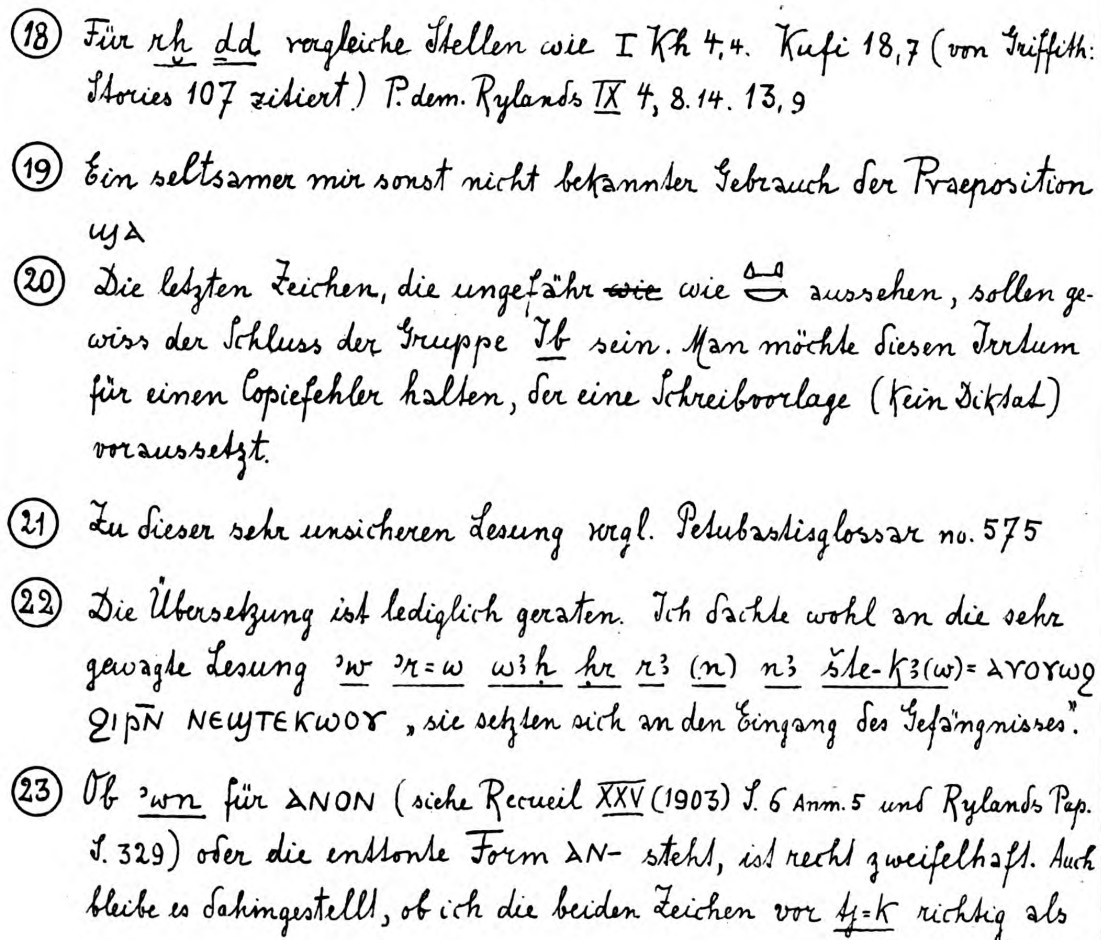 (18) Für rḫ ḏd vergleiche Stellen wie I Kh 4,4. Kufi 18,7 (von Griffith:
Stories 107 zitiert) P. dem. Rylands IX 4, 8.14. 13,9
(19) Ein seltsamer mir sonst nicht bekannter Gebrauch der Praeposition
ϣⲁ
(20) Die letzten Zeichen, die ungefähr wie wie aussehen, sollen ge-
wiss der Schluss der Gruppe Ib sein. Man möchte diesen Irrtum
für einen Copiefehler halten, der eine Schreibvorlage (kein Diktat)
voraussetzt.
(21) Zu dieser sehr unsicheren Lesung vrgl. Petubastisglossar no. 575
(22) Die Übersetzung ist lediglich geraten. Ich dachte wohl an die sehr
gewagte Lesung ꜣw ꜣr=w wꜣḥ ḥr rꜣ (n) nꜣ šte-kꜣ(w) = ⲁⲩⲟⲩⲱϩ
ϩⲓⲣⲛ̄ ⲛⲉϣⲧⲉⲕⲱⲟⲩ „sie setzten sich an den Eingang des Gefängnisses".
(23) Ob ꜣwn für ⲁⲛⲟⲛ (siehe Recueil XXV (1903) S. 6 Anm. 5 und Rylands Pap.
S. 329) oder die enttonte Form ⲁⲛ- steht, ist recht zweifelhaft. Auch
bleibe es dahingestellt, ob ich die beiden Zeichen vor ṱj=k richtig als